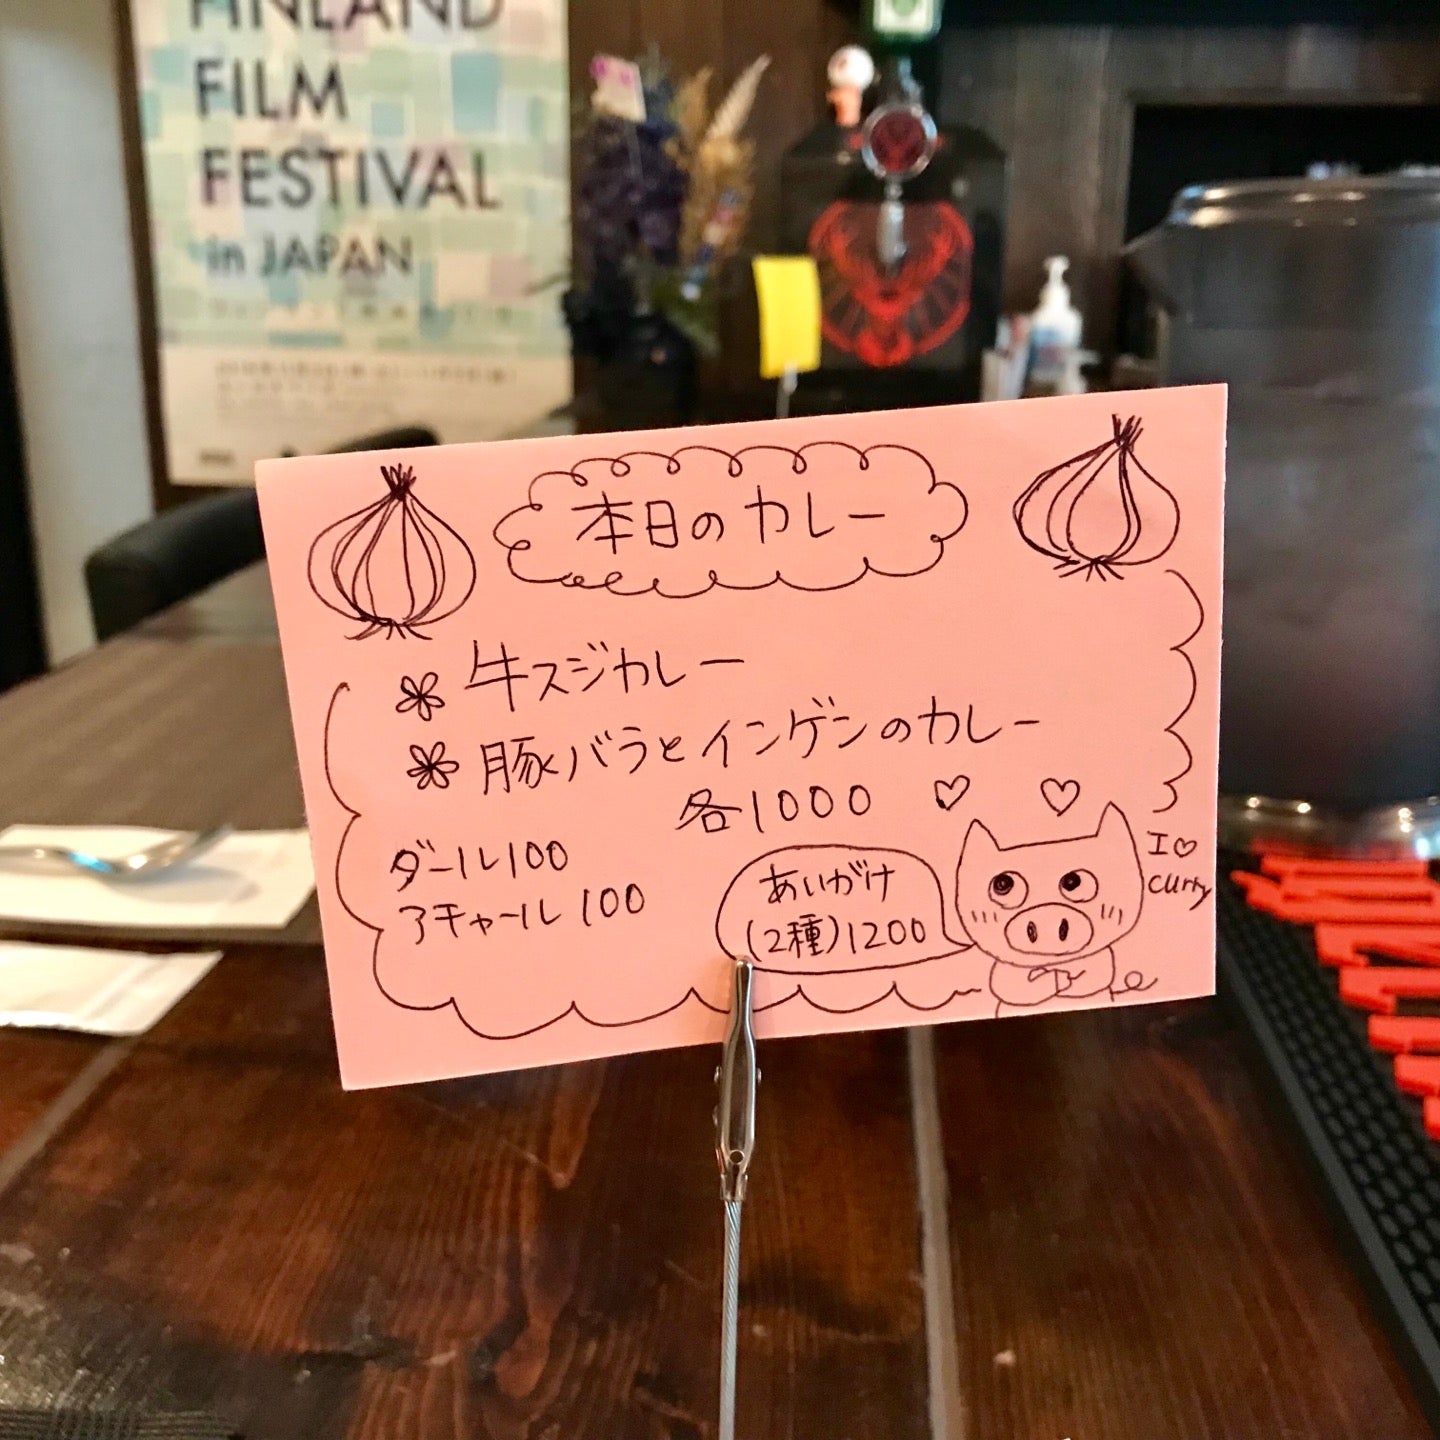 FINLAND
FILM
FESTIVAL
in JAPAN
本日のカレー
牛スジカレー
豚バラとインゲンのカレー
各1000
ダール100
アチャール100
あいがけ
(2種)1200
I♡
curry